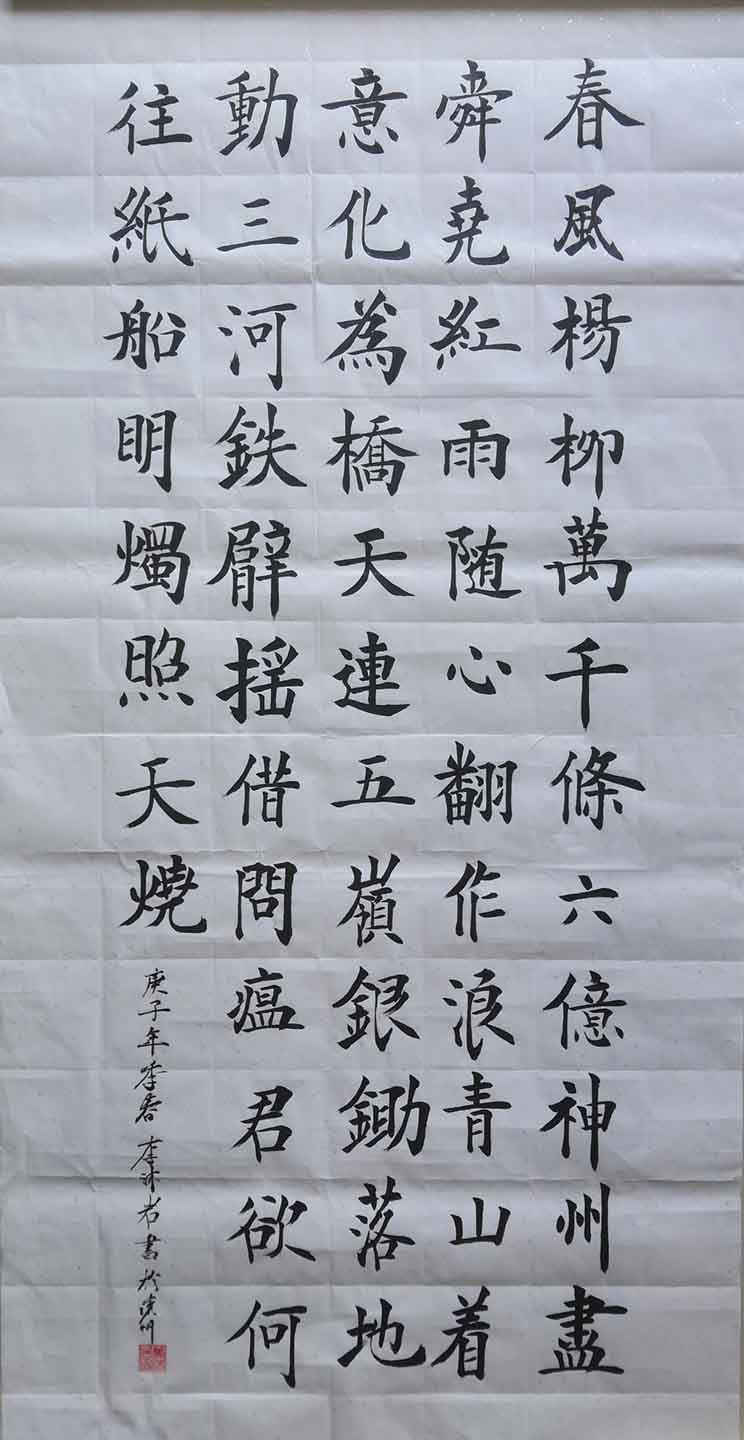 春風楊柳萬千條六億神州盡
舜堯紅雨随心翻作浪青山着
意化為橋天連五嶺銀鋤落地
動三河鉄臂摇借問瘟君欲何
往紙船明燭照天燒
庚子年季春 李沛岩書於滨州